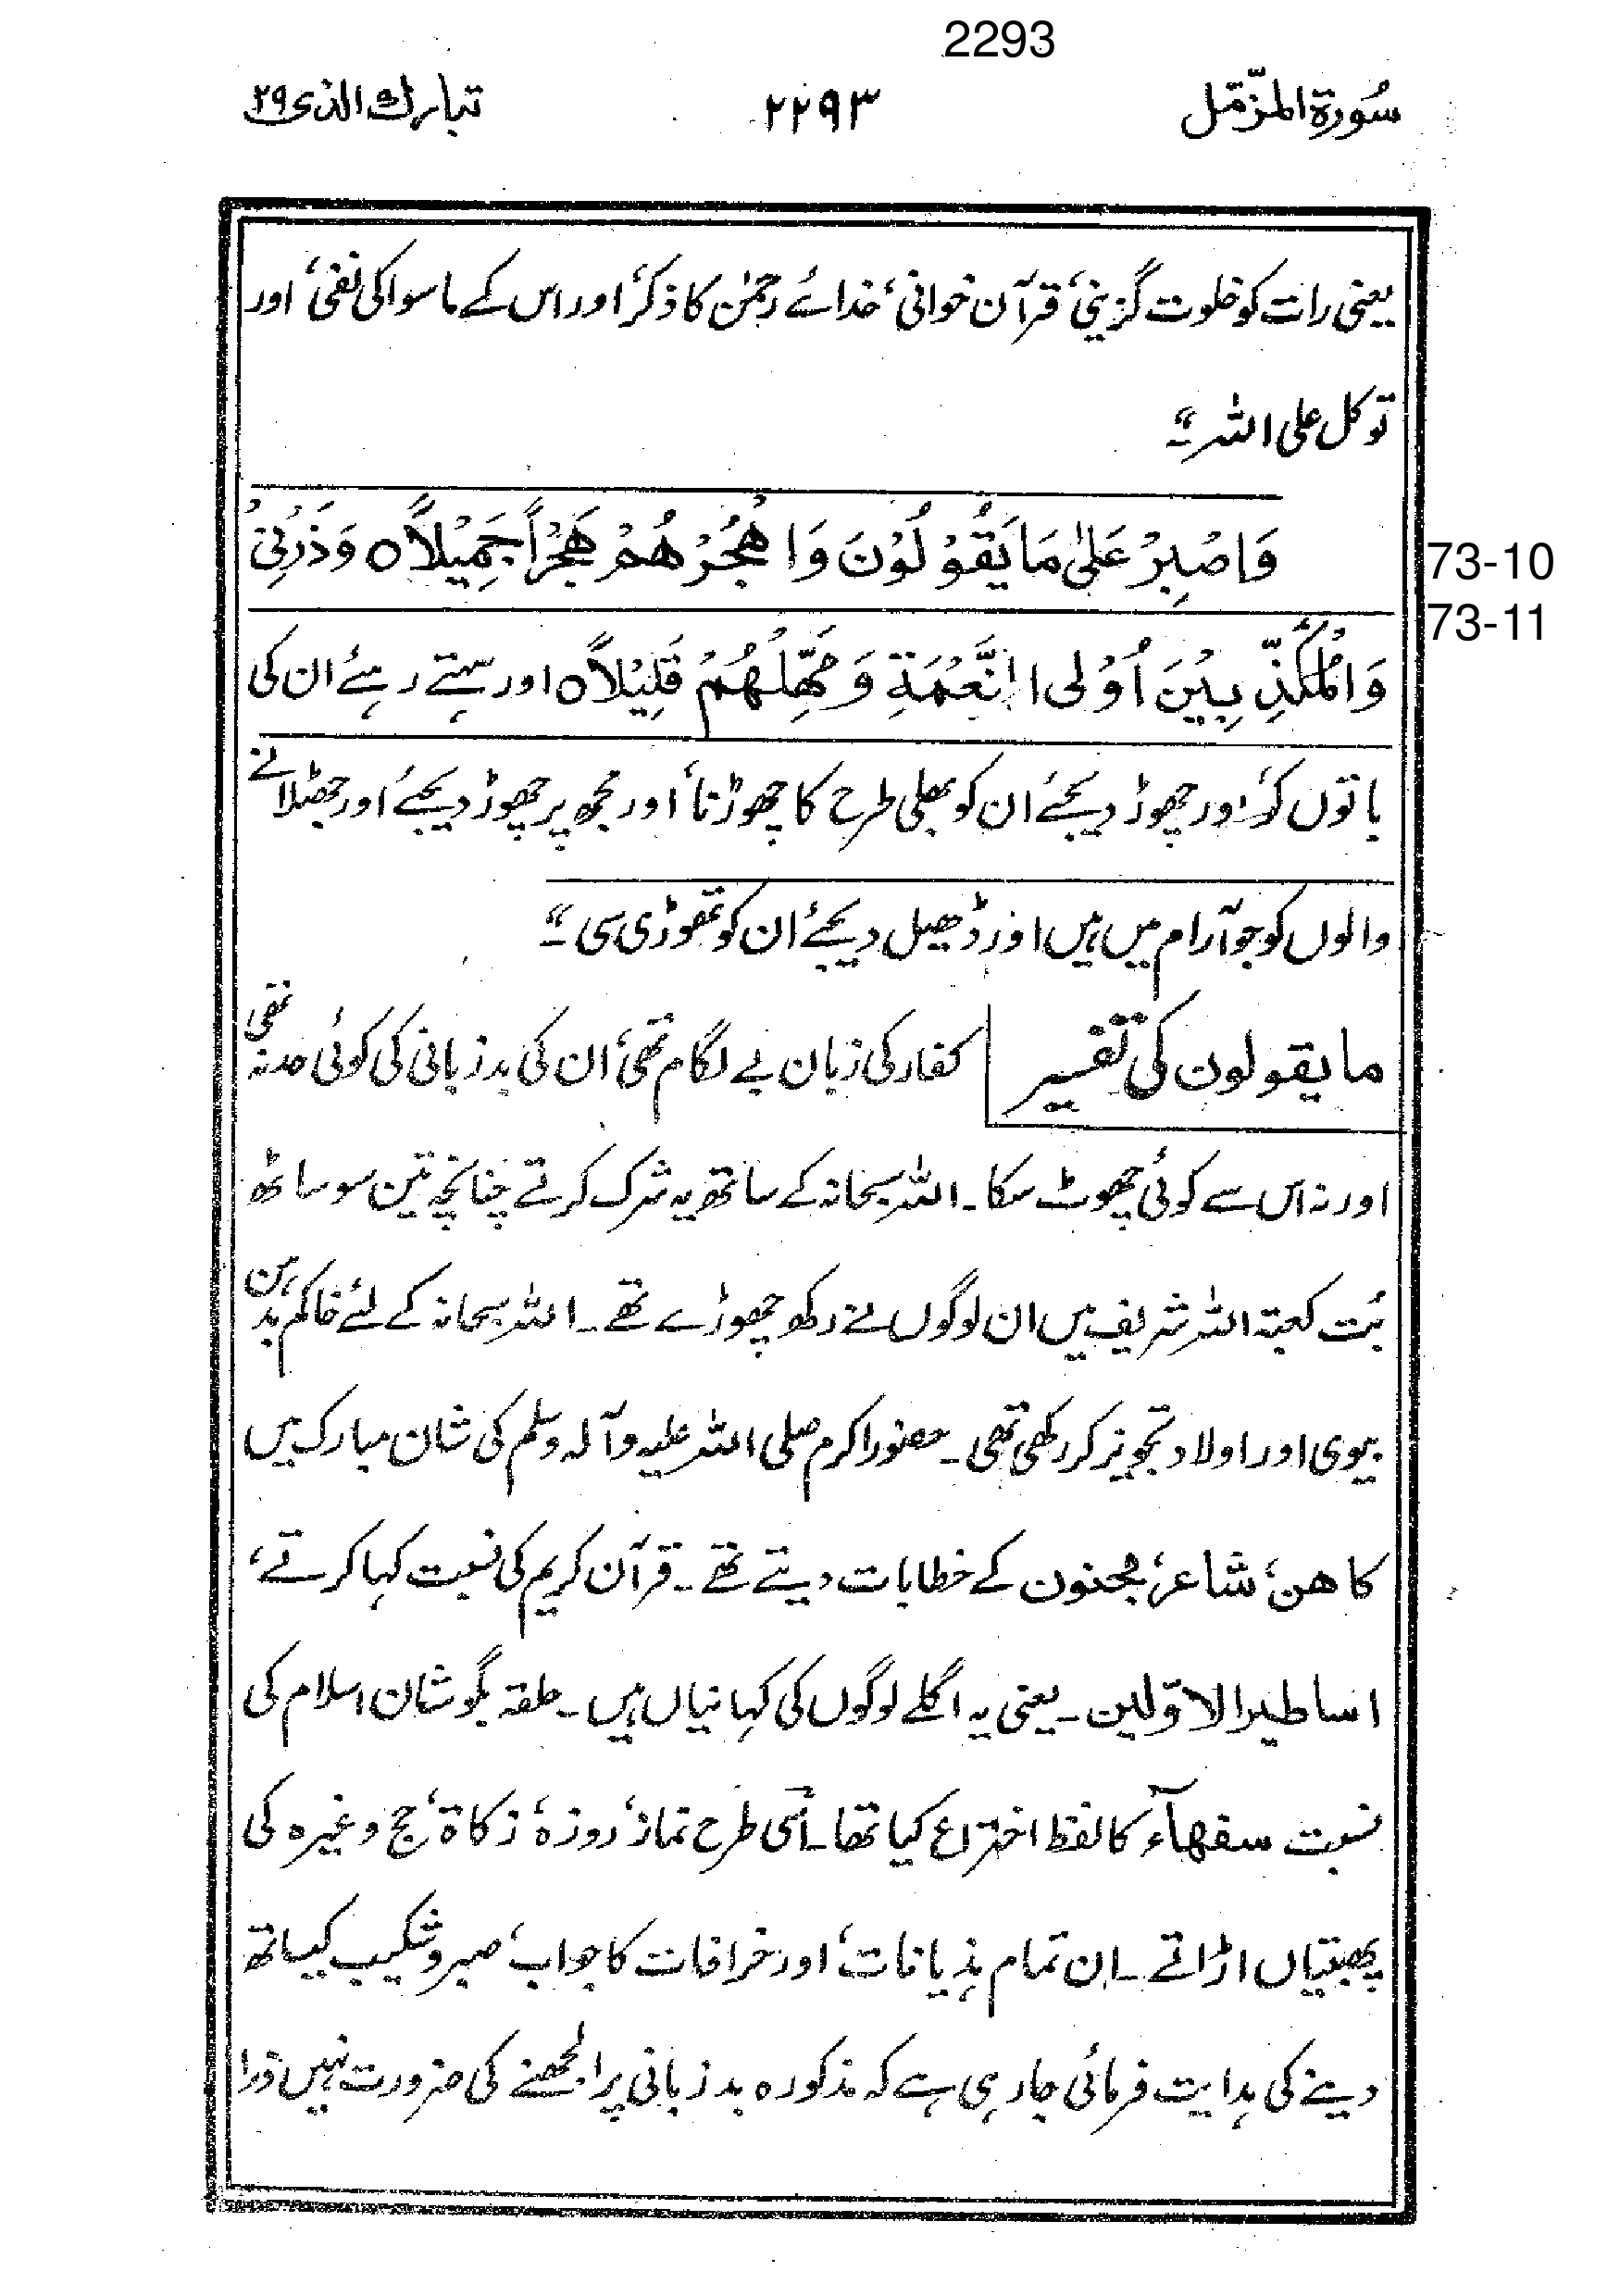 2293
سُورة المزّمّل ۲۲۹۳ تبارك الذی ۲۹
یعنی رات کو خلوت گزینی، قرآن خوانی، خدائے رحمٰن کا ذکر، اور اس کے ماسوا کی نفی، اور
توکل علی اللہ۔“
وَاصْبِرْ عَلیٰ مَا یَقُوْلُوْنَ وَاهْجُرْهُمْ هَجْرًا جَمِیْلًا٥ وَذَرْنِیْ 73-10
وَالْمُکَذِّبِیْنَ اُوْلی النَّعْمَةِ وَمَهِّلْهُمْ قَلِیْلًا٥ اور سہتے رہئے ان کی 73-11
باتوں کو، اور چھوڑ دیجئے ان کو بھلی طرح کا چھوڑنا، اور مجھ پر چھوڑ دیجئے، اور جھٹلانے
والوں کو جو آرام میں ہیں اور ڈھیل دیجئے ان کو تھوڑی سی۔“
ما یقولون کی تفسیر کفار کی زبان بے لگام تھی، ان کی بد زبانی کی کوئی حد نہ تھی،
اور نہ اس سے کوئی چھوٹ سکا۔ اللہ سبحانہ کے ساتھ یہ شرک کرتے چنانچہ تین سو ساٹھ
بُت کعبتہ اللہ شریف میں ان لوگوں نے رکھ چھوڑے تھے۔ اللہ سبحانہ کے لئے خاکم بدہن
بیوی اور اولاد تجویز کر رکھی تھی۔ حضور اکرم صلی اللہ علیہ وآلہ وسلم کی شان مبارک میں
کاهن، شاعر، مجنون کے خطابات دیتے تھے۔ قرآن کریم کی نسبت کہا کرتے،
اساطیر الاوّلین۔ یعنی یہ اگلے لوگوں کی کہانیاں ہیں۔ حلقہ بگوشان اسلام کی
نسبت سفهآء کا لفظ اختراع کیا تھا۔ اسی طرح نماز، روزہ، زکاة، حج وغیرہ کی
پھبتیاں اڑاتے۔ ان تمام ہذیانات، اور خرافات کا جواب، صبر و شکیب کیساتھ
دینے کی ہدایت فرمائی جا رہی ہے کہ مذکورہ بد زبانی پر الجھنے کی ضرورت نہیں ذرا